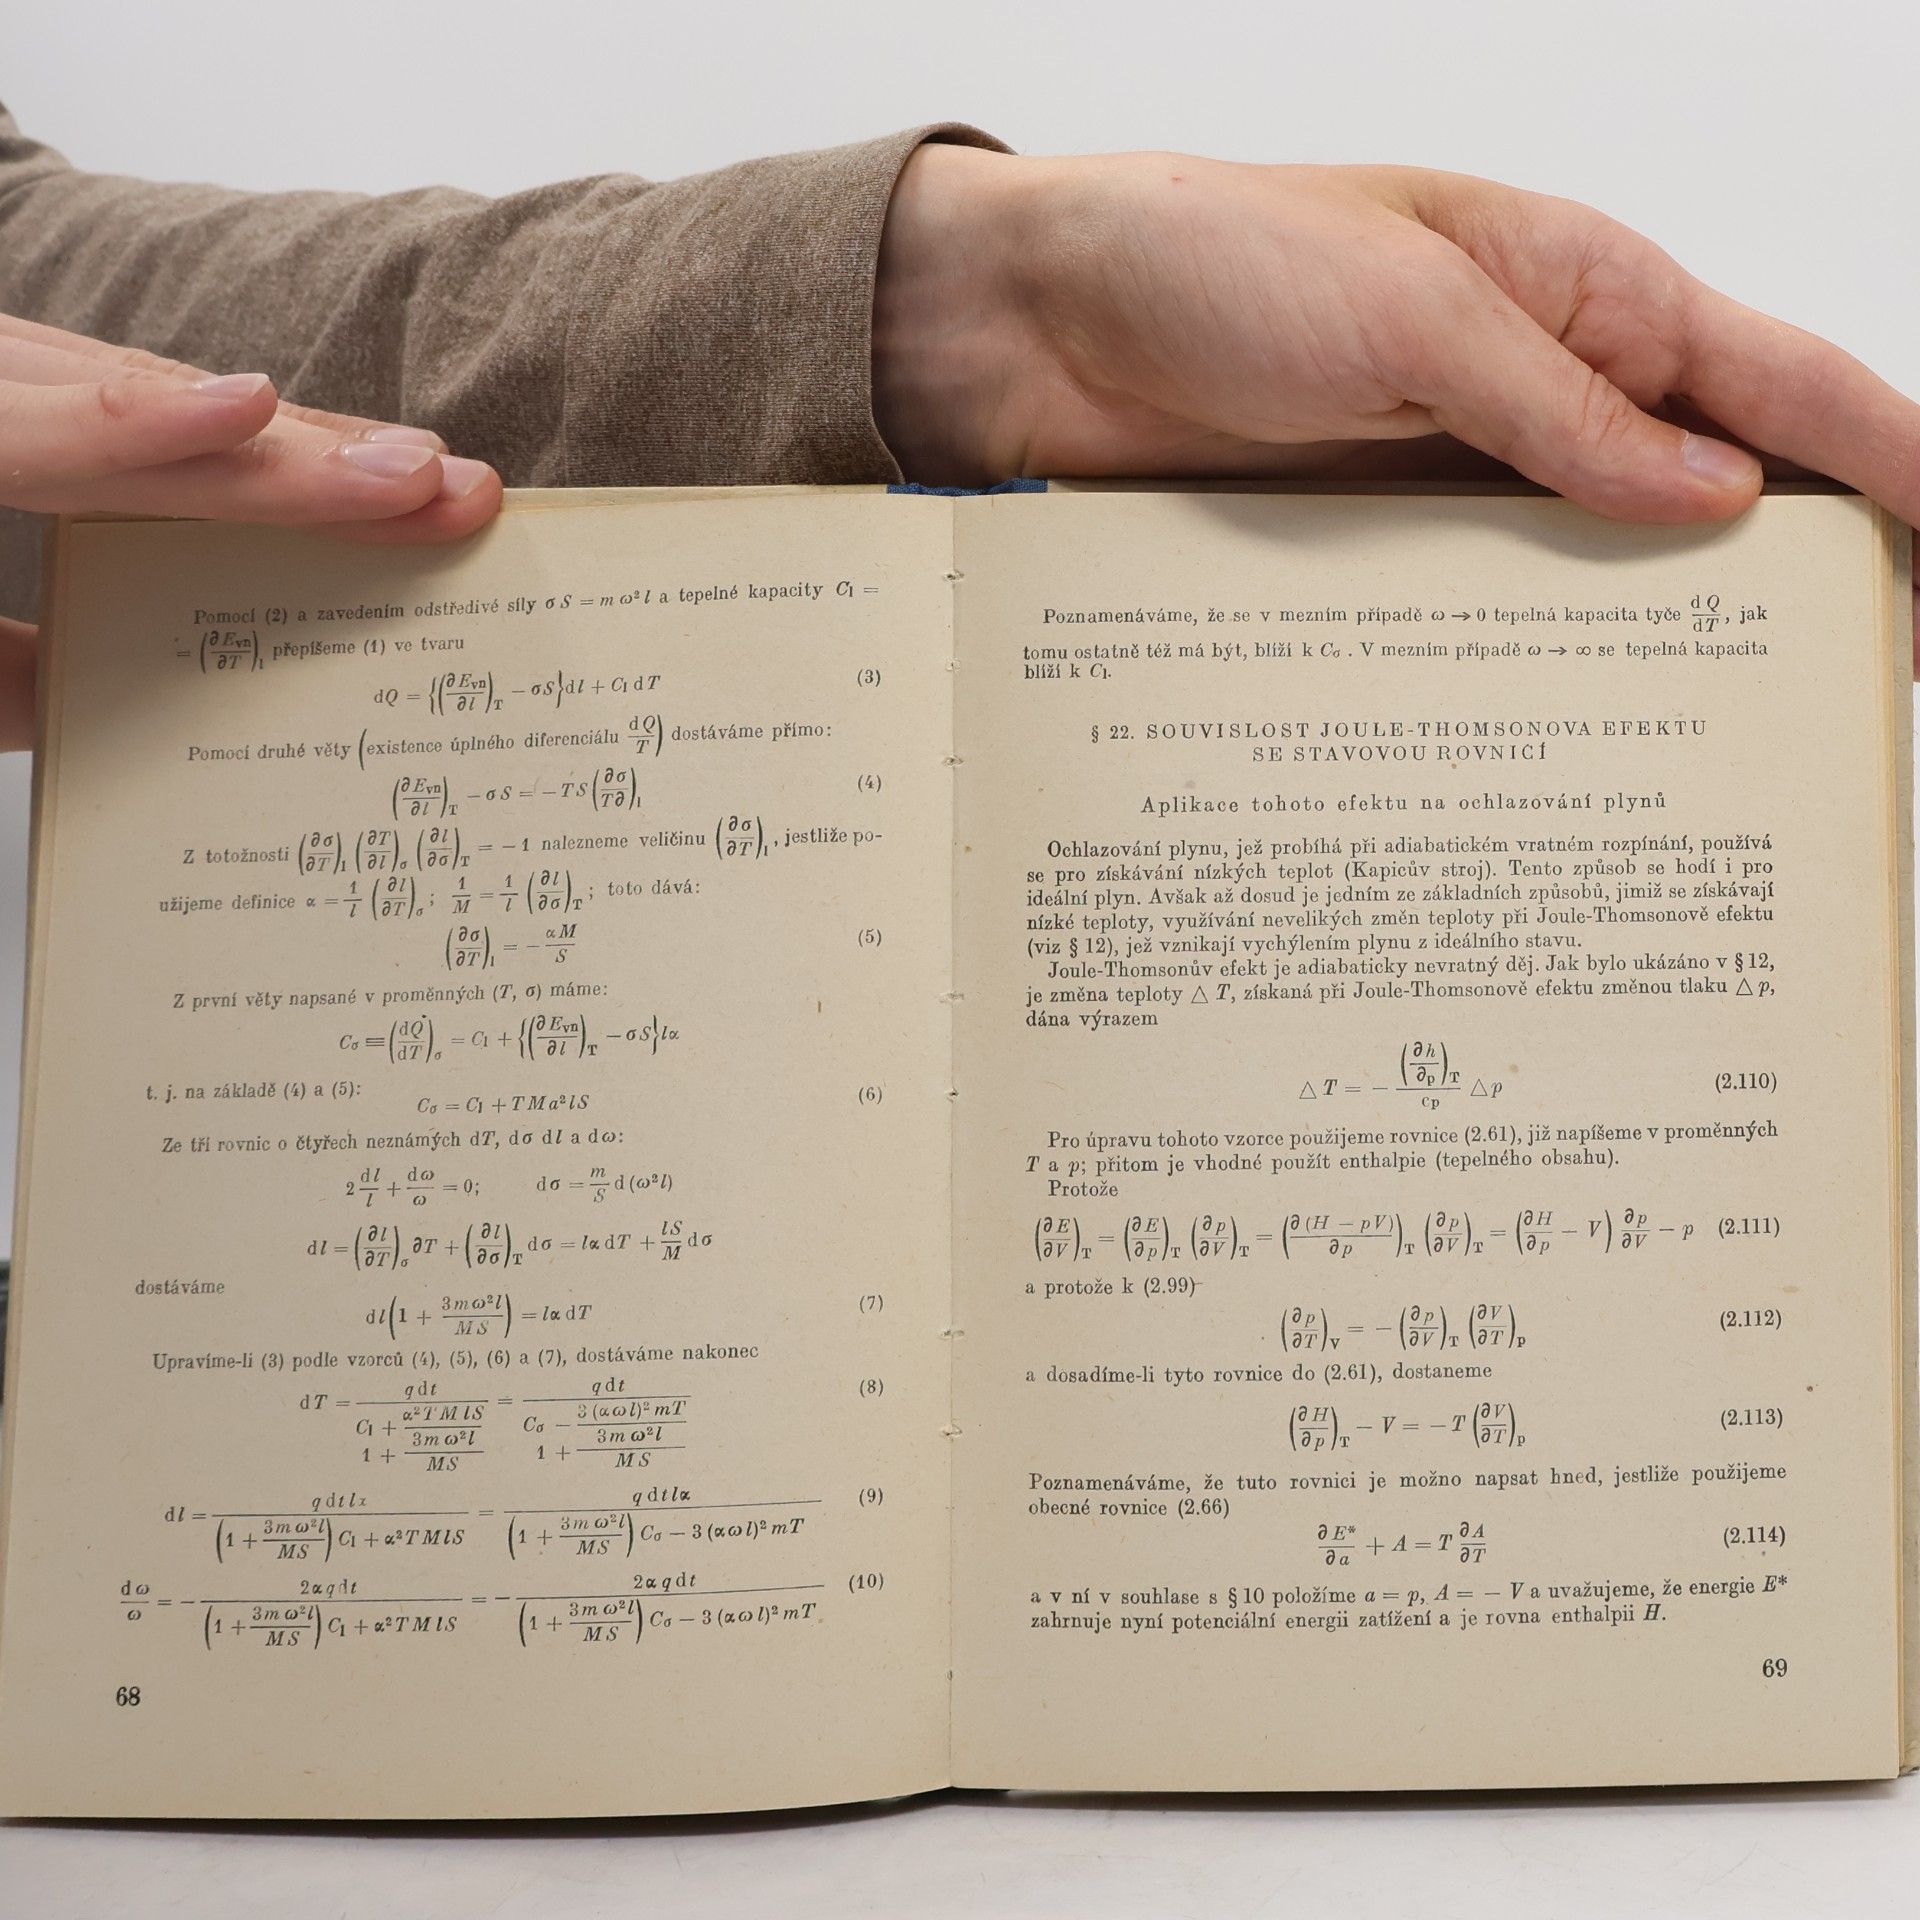 Pomocí (2) a zavedením odstředivé síly σ S = m ω² l a tepelné kapacity C₁ =
= (∂Eᵥₙ/∂T)ₗ přepíšeme (1) ve tvaru
dQ = {(∂Eᵥₙ/∂l)_T − σS} dl + C₁ dT (3)
Pomocí druhé věty (existence úplného diferenciálu dQ/T) dostáváme přímo:
(∂Eᵥₙ/∂l)_T − σS = − TS (∂σ/T∂)ₗ (4)
Z totožnosti (∂σ/∂T)ₗ (∂T/∂l)_σ (∂l/∂σ)_T = − 1 nalezneme veličinu (∂σ/∂T)ₗ, jestliže po-
užijeme definice α = 1/l (∂l/∂T)_σ; 1/M = 1/l (∂l/∂σ)_T; toto dává:
(∂σ/∂T)ₗ = − αM/S (5)
Z první věty napsané v proměnných (T, σ) máme:
C_σ ≡ (dQ/dT)_σ = C₁ + {(∂Eᵥₙ/∂l)_T − σS} lα
t. j. na základě (4) a (5):
C_σ = C₁ + TMa²lS (6)
Ze tří rovnic o čtyřech neznámých dT, dσ dl a dω:
2 dl/l + dω/ω = 0; dσ = m/S d (ω²l)
dl = (∂l/∂T)_σ ∂T + (∂l/∂σ)_T dσ = lα dT + lS/M dσ
dostáváme
dl (1 + 3mω²l/MS) = lα dT (7)
Upravíme-li (3) podle vzorců (4), (5), (6) a (7), dostáváme nakonec
dT = q dt / (C₁ + α²TMlS / (1 + 3mω²l/MS)) = q dt / (C_σ − 3(αωl)²mT / (1 + 3mω²l/MS)) (8)
dl = q dt lα / ((1 + 3mω²l/MS) C₁ + α²TMlS) = q dt lα / ((1 + 3mω²l/MS) C_σ − 3(αωl)²mT) (9)
dω/ω = − 2αq dt / ((1 + 3mω²l/MS) C₁ + α²TMlS) = − 2αq dt / ((1 + 3mω²l/MS) C_σ − 3(αωl)²mT) (10)
68
Poznamenáváme, že se v mezním případě ω → 0 tepelná kapacita tyče dQ/dT, jak
tomu ostatně též má být, blíží k C_σ . V mezním případě ω → ∞ se tepelná kapacita
blíží k C₁.
§ 22. SOUVISLOST JOULE-THOMSONOVA EFEKTU
SE STAVOVOU ROVNICÍ
Aplikace tohoto efektu na ochlazování plynů
Ochlazování plynu, jež probíhá při adiabatickém vratném rozpínání, používá
se pro získávání nízkých teplot (Kapicův stroj). Tento způsob se hodí i pro
ideální plyn. Avšak až dosud je jedním ze základních způsobů, jimiž se získávají
nízké teploty, využívání nevelikých změn teploty při Joule-Thomsonově efektu
(viz § 12), jež vznikají vychýlením plynu z ideálního stavu.
Joule-Thomsonův efekt je adiabaticky nevratný děj. Jak bylo ukázáno v § 12,
je změna teploty △ T, získaná při Joule-Thomsonově efektu změnou tlaku △ p,
dána výrazem
△ T = − (∂h/∂p)_T / c_p △ p (2.110)
Pro úpravu tohoto vzorce použijeme rovnice (2.61), již napíšeme v proměnných
T a p; přitom je vhodné použít enthalpie (tepelného obsahu).
Protože
(∂E/∂V)_T = (∂E/∂p)_T (∂p/∂V)_T = (∂(H − pV)/∂p)_T (∂p/∂V)_T = (∂H/∂p − V) ∂p/∂V − p (2.111)
a protože k (2.99)
(∂p/∂T)_V = − (∂p/∂V)_T (∂V/∂T)_p (2.112)
a dosadíme-li tyto rovnice do (2.61), dostaneme
(∂H/∂p)_T − V = − T (∂V/∂T)_p (2.113)
Poznamenáváme, že tuto rovnici je možno napsat hned, jestliže použijeme
obecné rovnice (2.66)
∂E*/∂a + A = T ∂A/∂T (2.114)
a v ní v souhlase s § 10 položíme a = p, A = − V a uvažujeme, že energie E*
zahrnuje nyní potenciální energii zatížení a je rovna enthalpii H.
69